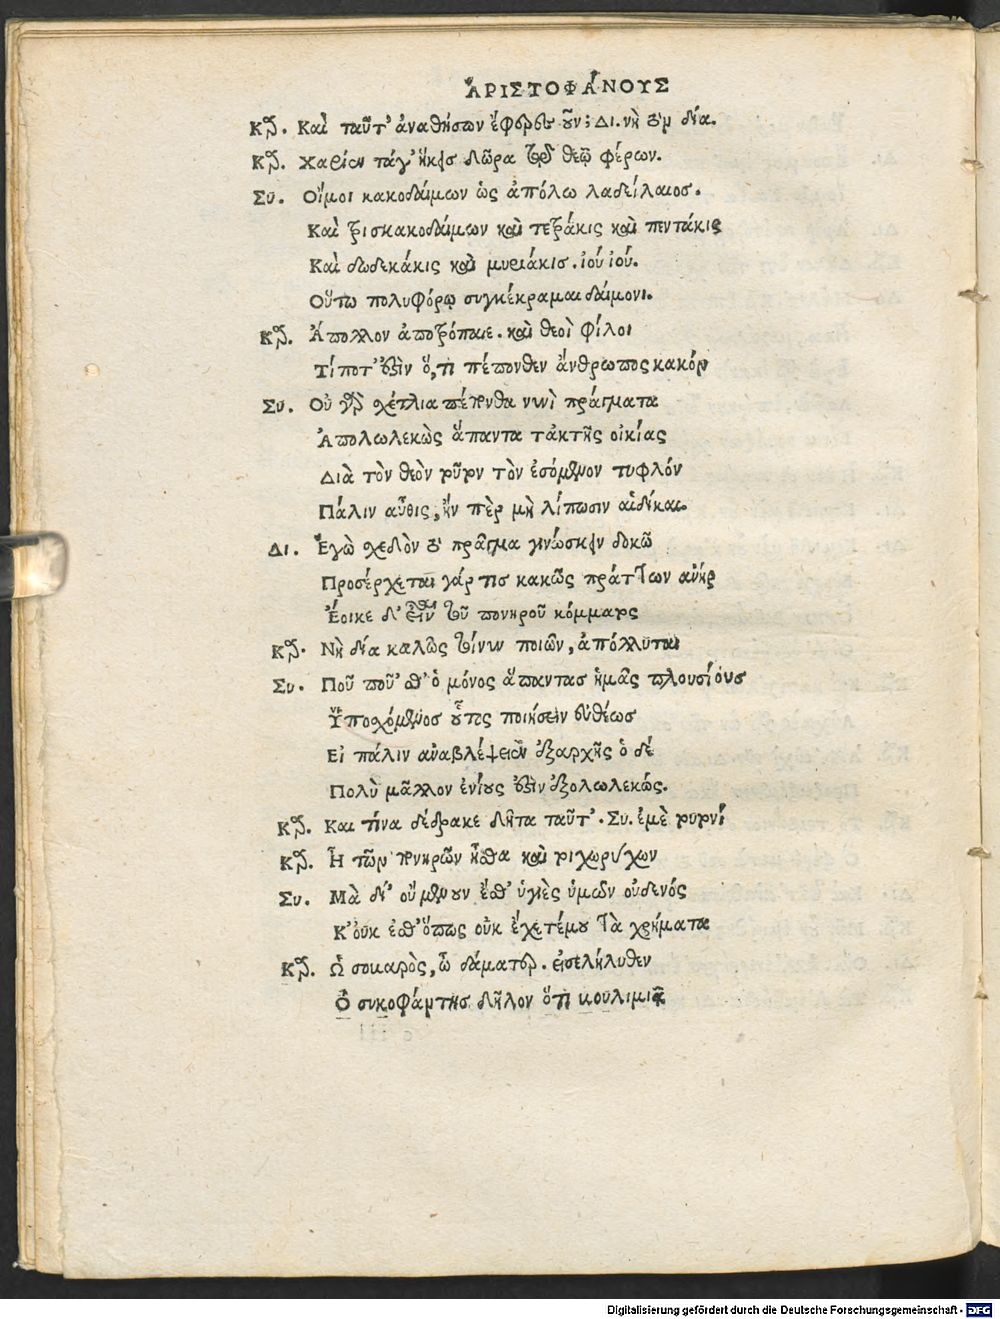 ἈΡΙΣΤΟΦΆΝΟΥΣ
Κρ. Καὶ ταῦτ' ἀναθήσων ἔφερες οὖν; Δι. νὴ τὸν δία.
Κρ. Χαρίεντά γ' ἥκεις δῶρα τῷ θεῷ φέρων.
Συ. Οἴμοι κακοδαίμων ὡς ἀπόλωλα δείλαιος.
Καὶ τρισκακοδαίμων καὶ τετράκις καὶ πεντάκις
Καὶ δωδεκάκις καὶ μυριάκις. ἰοὺ ἰού.
Οὕτω πολυφόρῳ συγκέκραμαι δαίμονι.
Κρ. Ἄπολλον ἀποτρόπαιε. καὶ θεοὶ φίλοι
Τίποτ' ἐστὶν ὅ,τι πέπονθεν ἄνθρωπος κακόν
Συ. Οὐ γὰρ σχέτλια πέπονθα νυνὶ πράγματα
Ἀπολωλεκὼς ἅπαντα τἀκτῆς οἰκίας
Διὰ τὸν θεὸν τοῦτον τὸν ἐσόμενον τυφλόν
Πάλιν αὖθις, ἤν πὲρ μὴ λίπωσιν αἱ δίκαι.
Δι. Ἐγὼ σχεδὸν τὸ πρᾶγμα γινώσκειν δοκῶ
Προσέρχεται γάρ τις κακῶς πράττων ἀνήρ
Ἔοικε δ' εἶναι τοῦ πονηροῦ κόμματος
Κρ. Νὴ δία καλῶς τοίνυν ποιῶν, ἀπόλλυται
Συ. Ποῦ ποῦ 'σθ' ὁ μόνος ἅπαντας ἡμᾶς πλουσίους
Ὑποσχόμενος οὗτος ποιήσειν εὐθέως
Εἰ πάλιν ἀναβλέψειεν ἐξαρχῆς ὁ δέ
Πολὺ μᾶλλον ἐνίους ἐστὶν ἐξολωλεκώς.
Κρ. Και τίνα δέδρακε δῆτα ταῦτ'. Συ. ἐμὲ τουτονί
Κρ. Ἦ τῶν πονηρῶν ἦσθα καὶ τοιχωρύχων
Συ. Μὰ δί' οὐ μὲν οὖν ἔσθ' ὑγιὲς ὑμῶν οὐδενός
Κ'οὐκ ἐσθ' ὅπως οὐκ ἔχετέ μου τὰ χρήματα
Κρ. Ὡ σοβαρὸς, ὦ δάματερ. εἰσελήλυθεν
Ὁ συκοφάντης δῆλον ὅτι βουλιμιᾷ
Digitalisierung gefördert durch die Deutsche Forschungsgemeinschaft - DFG